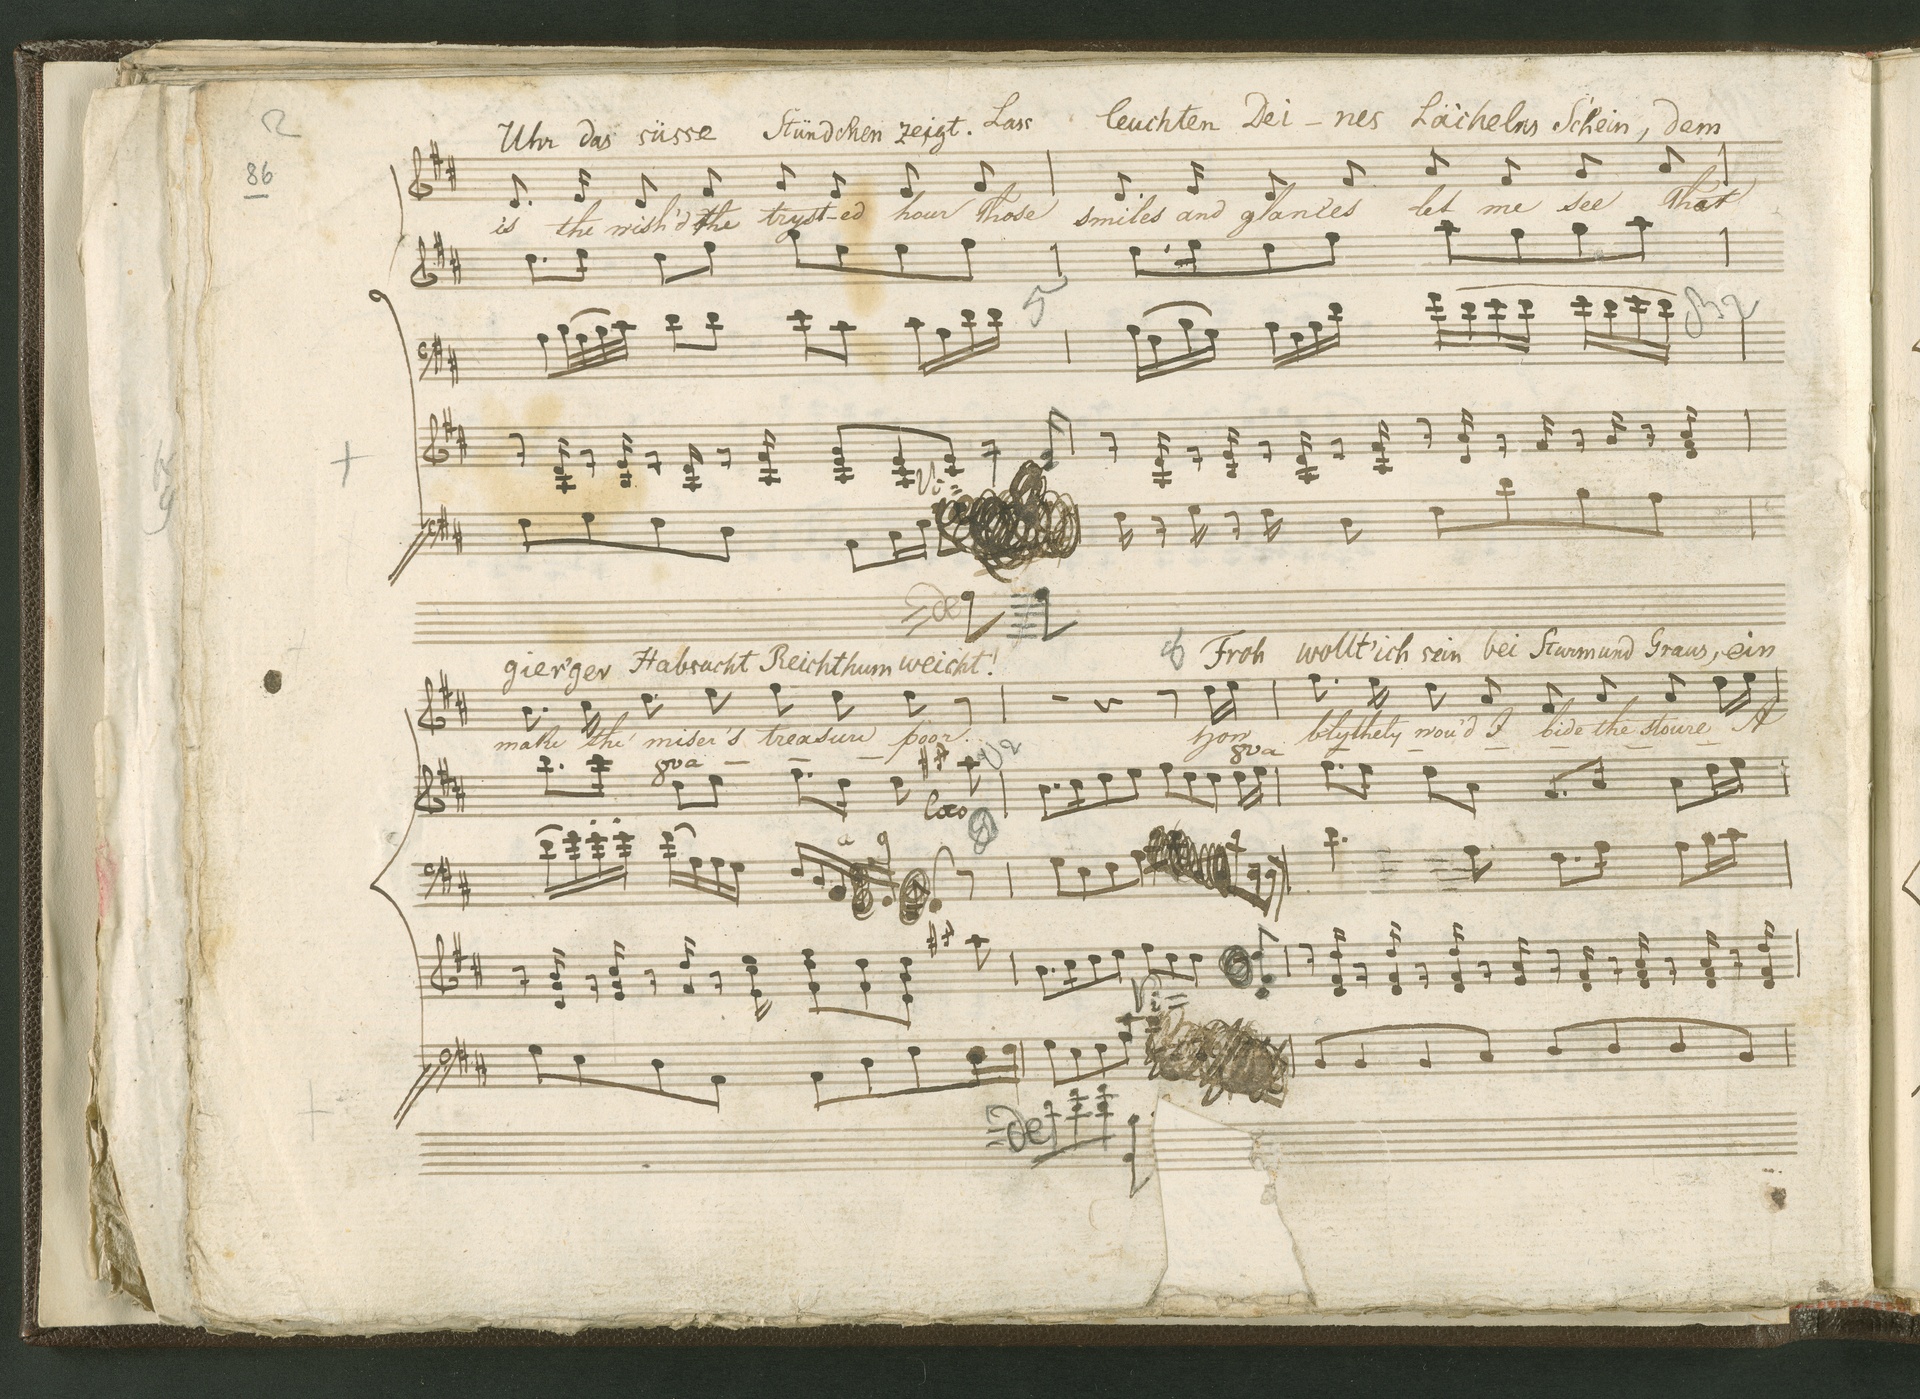 2
86
Uhr das süsse Stündchen zeigt. Lass leuchten Dei - nes Lächelns Schein, dem
is the wish'd the tryst-ed hour Those smiles and glances let me see That
gier'ger Habsucht Reichthum weicht! Froh wollt' ich sein bei Sturm und Graus, ein
make the miser's treasure poor. How blythely wou'd I bide the stoure A
8va 8va
loco